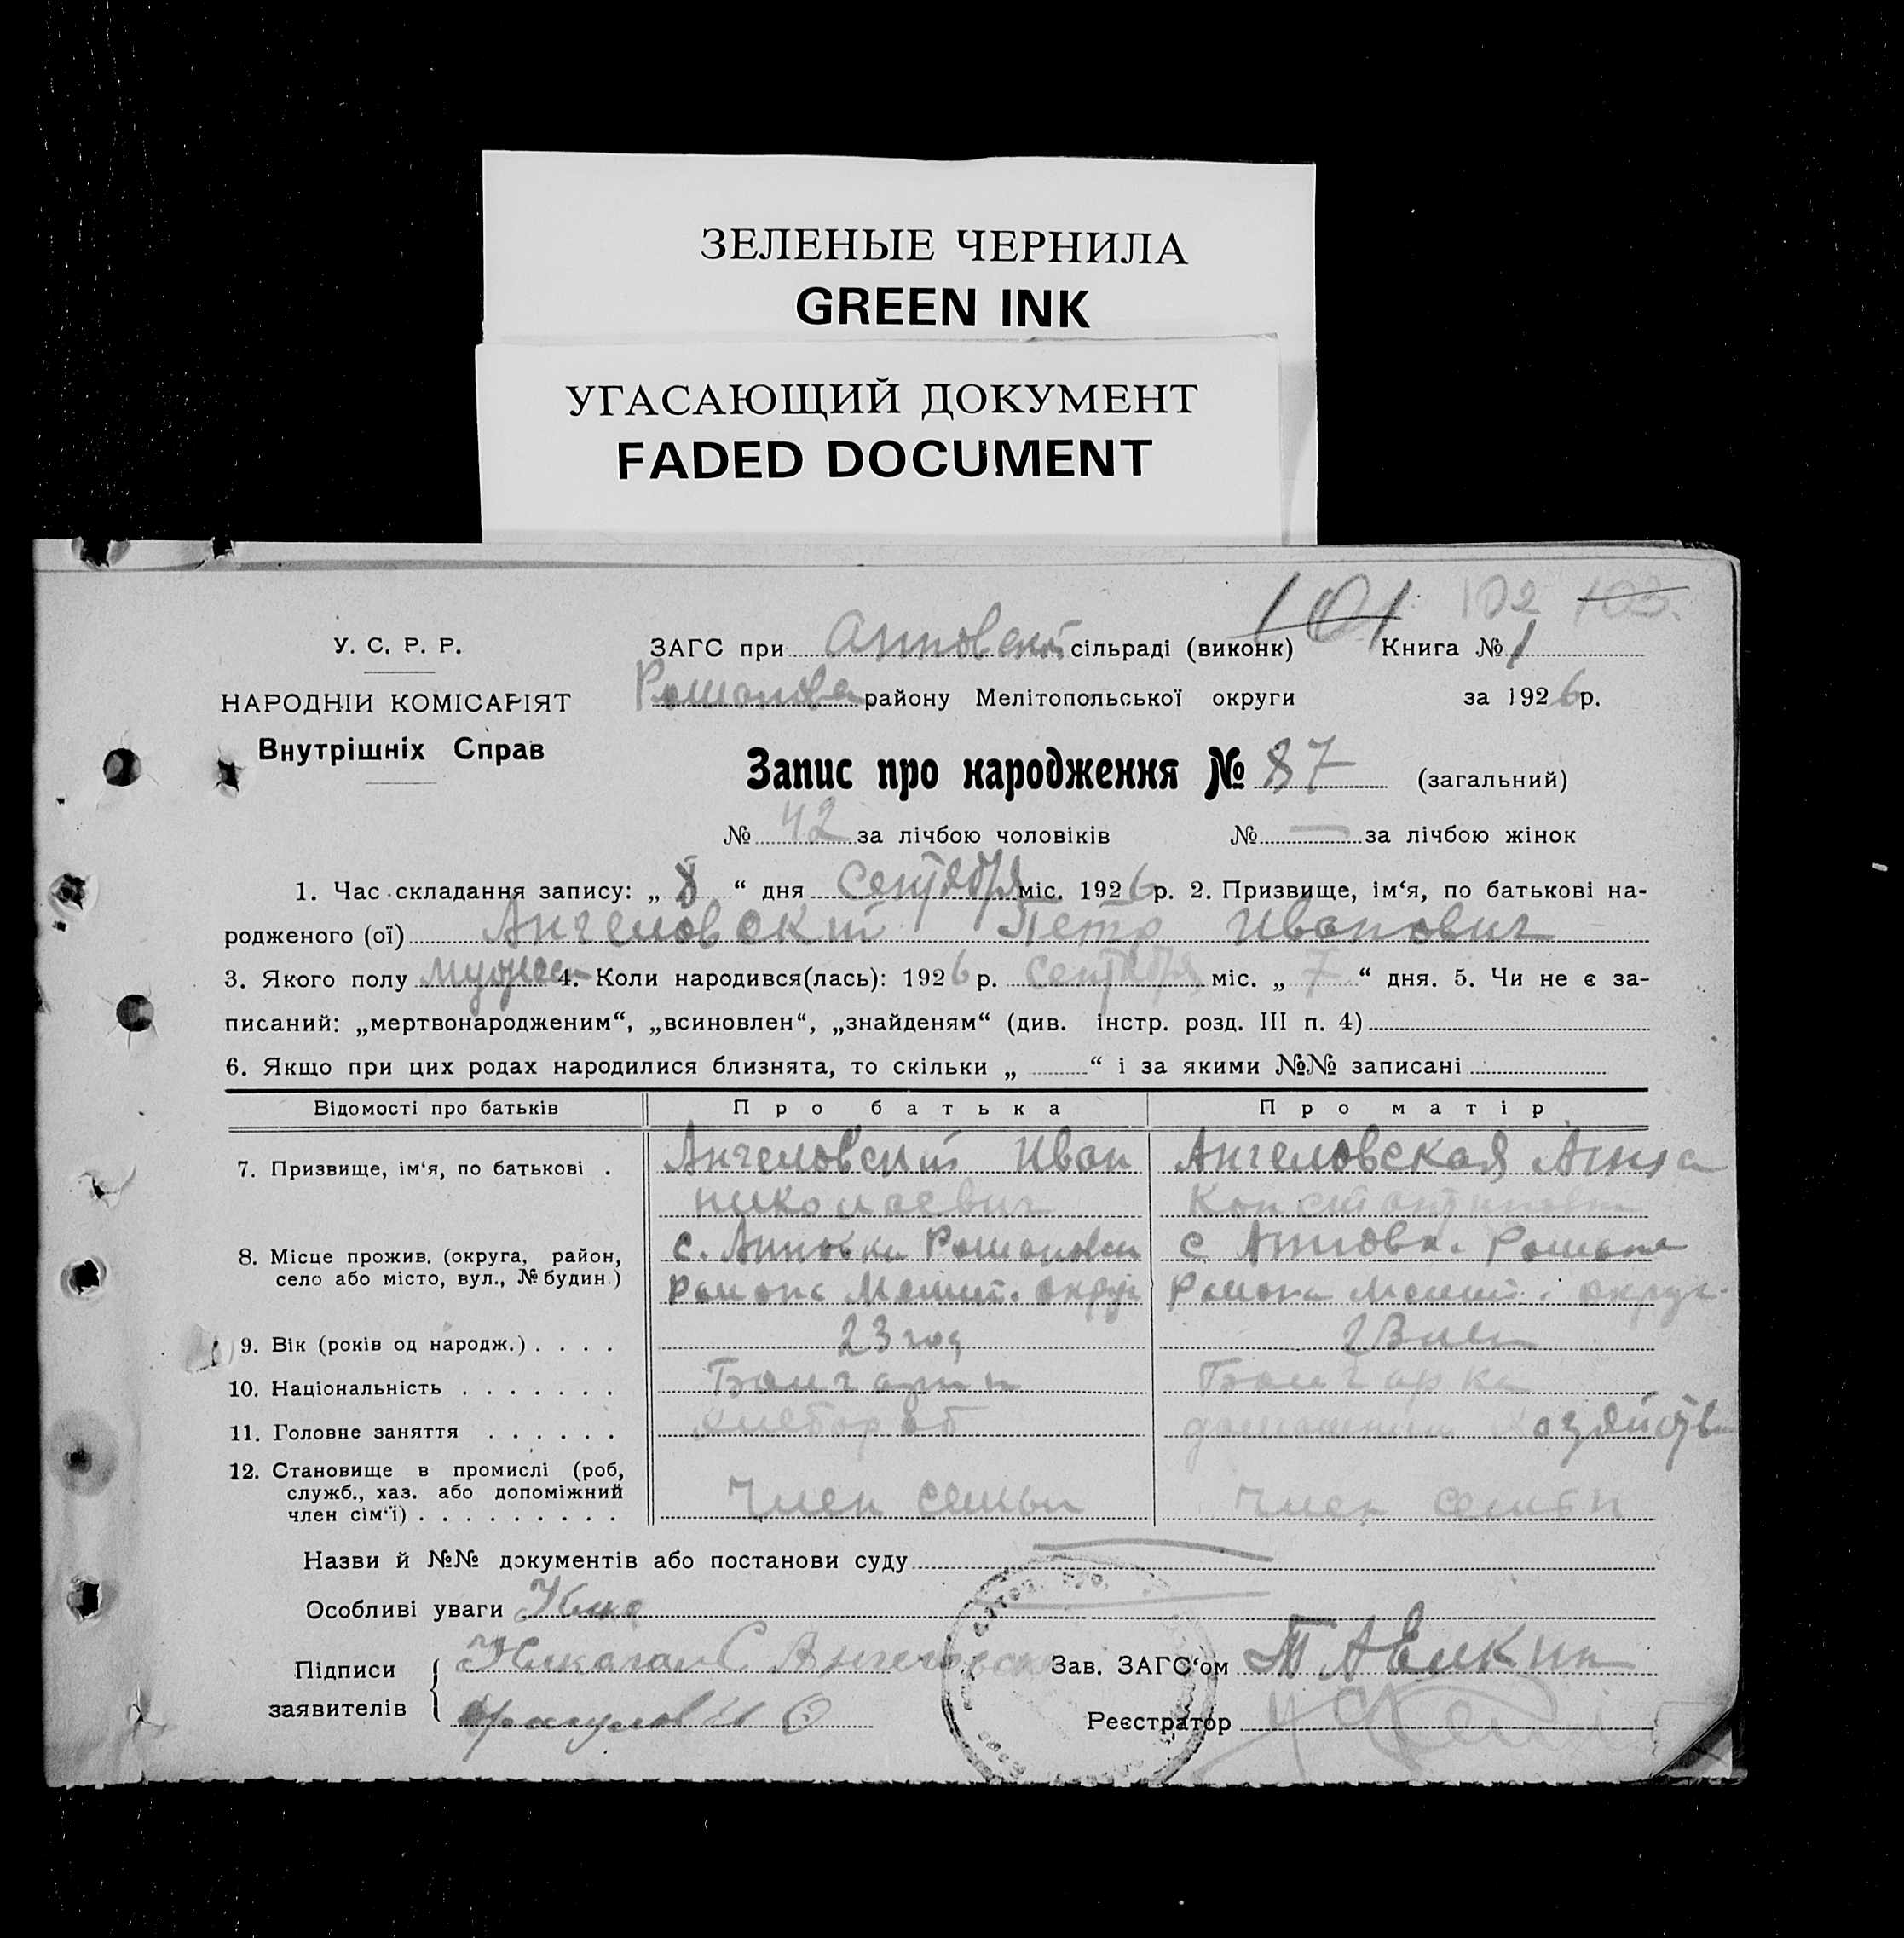 ЗЕЛЕНЫЕ ЧЕРНИЛА
GREEN INK
УГАСАЮЩИЙ ДОКУМЕНТ
FADED DOCUMENT
101 102 103
У. С. Р. Р. ЗАГС при сільраді (виконк) Книга № 1
НАРОДНІЙ КОМІСАРІЯТ району Мелітопольської округи за 1926 р.
Внутрішніх Справ
Запис про народження № 87 (загальний)
№ 42 за лічбою чоловіків № — за лічбою жінок
1. Час складання запису: „ 8 “ дня Сентября міс. 1926 р. 2. Призвище, ім‘я, по батькові на-
родженого (ої) Ангеловский Петр Иванович
3. Якого полу мужск 4. Коли народився(лась): 1926 р. Сентября міс. „ 7 “ дня. 5. Чи не є за-
писаний: „мертвонародженим“, „всиновлен“, „знайденям“ (див. інстр. розд. III п. 4)
6. Якщо при цих родах народилися близнята, то скільки „ “ і за якими №№ записані
Відомості про батьків Про батька Про матір
7. Призвище, ім‘я, по батькові . Ангеловский Иван Ангеловская Анна
николаевич Константиновна
8. Місце прожив. (округа, район, село або місто, вул., № будин.) с. Анновка с
Района Мелит. округ Района Мелит. округ
9. Вік (років од народж.) . . . . 23 год
10. Національність . . . . . . . Болгарин Болгарка
11. Головне заняття . . . . . . хлебороб домашним хозяйством
12. Становище в промислі (роб,
служб., хаз. або допоміжний
член сім‘ї) . . . . . . . . . Член семьи Член семьи
Назви й №№ документів або постанови суду
Особливі уваги
Підписи Ангеловск Зав. ЗАГС‘ом
заявителів Реєстратор